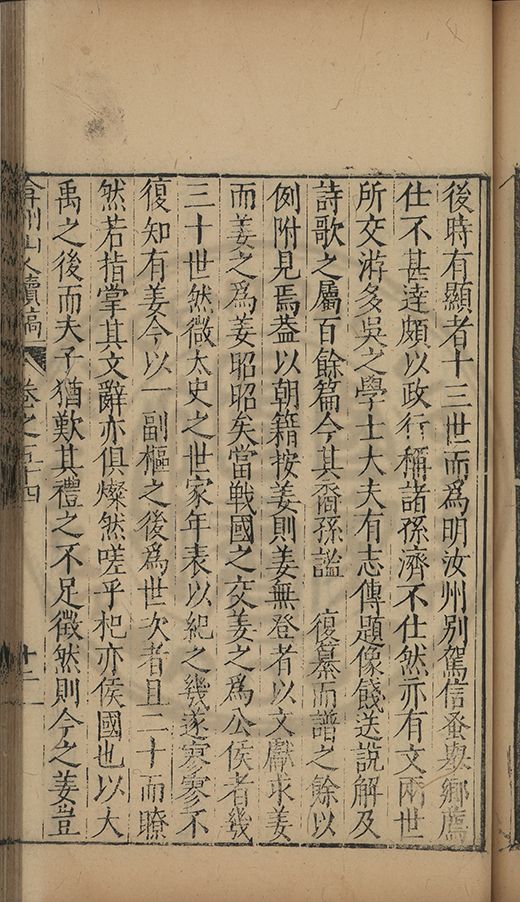 後時有顯者十三世而為明汝州別駕信蚤與鄉薦
仕不甚達頗以政行稱諸孫濟不仕然亦有文兩世
所交游多吳之學士大夫有志傳題像餞送說解及
詩歌之屬百餘篇今其裔孫謐　復纂而譜之餘以
例附見焉葢以朝籍按姜則姜無登者以文獻求姜
而姜之為姜昭昭矣當戰國之交姜之為公侯者幾
三十世然微太史之世家年表以紀之幾遂寥寥不
復知有姜今以一副樞之後為世次者且二十而瞭
然若指掌其文辭亦俱燦然嗟乎杞亦侯國也以大
禹之後而夫子猶歎其禮之不足徵然則今之姜豈
弇州山人續稿　卷之五十四　十二